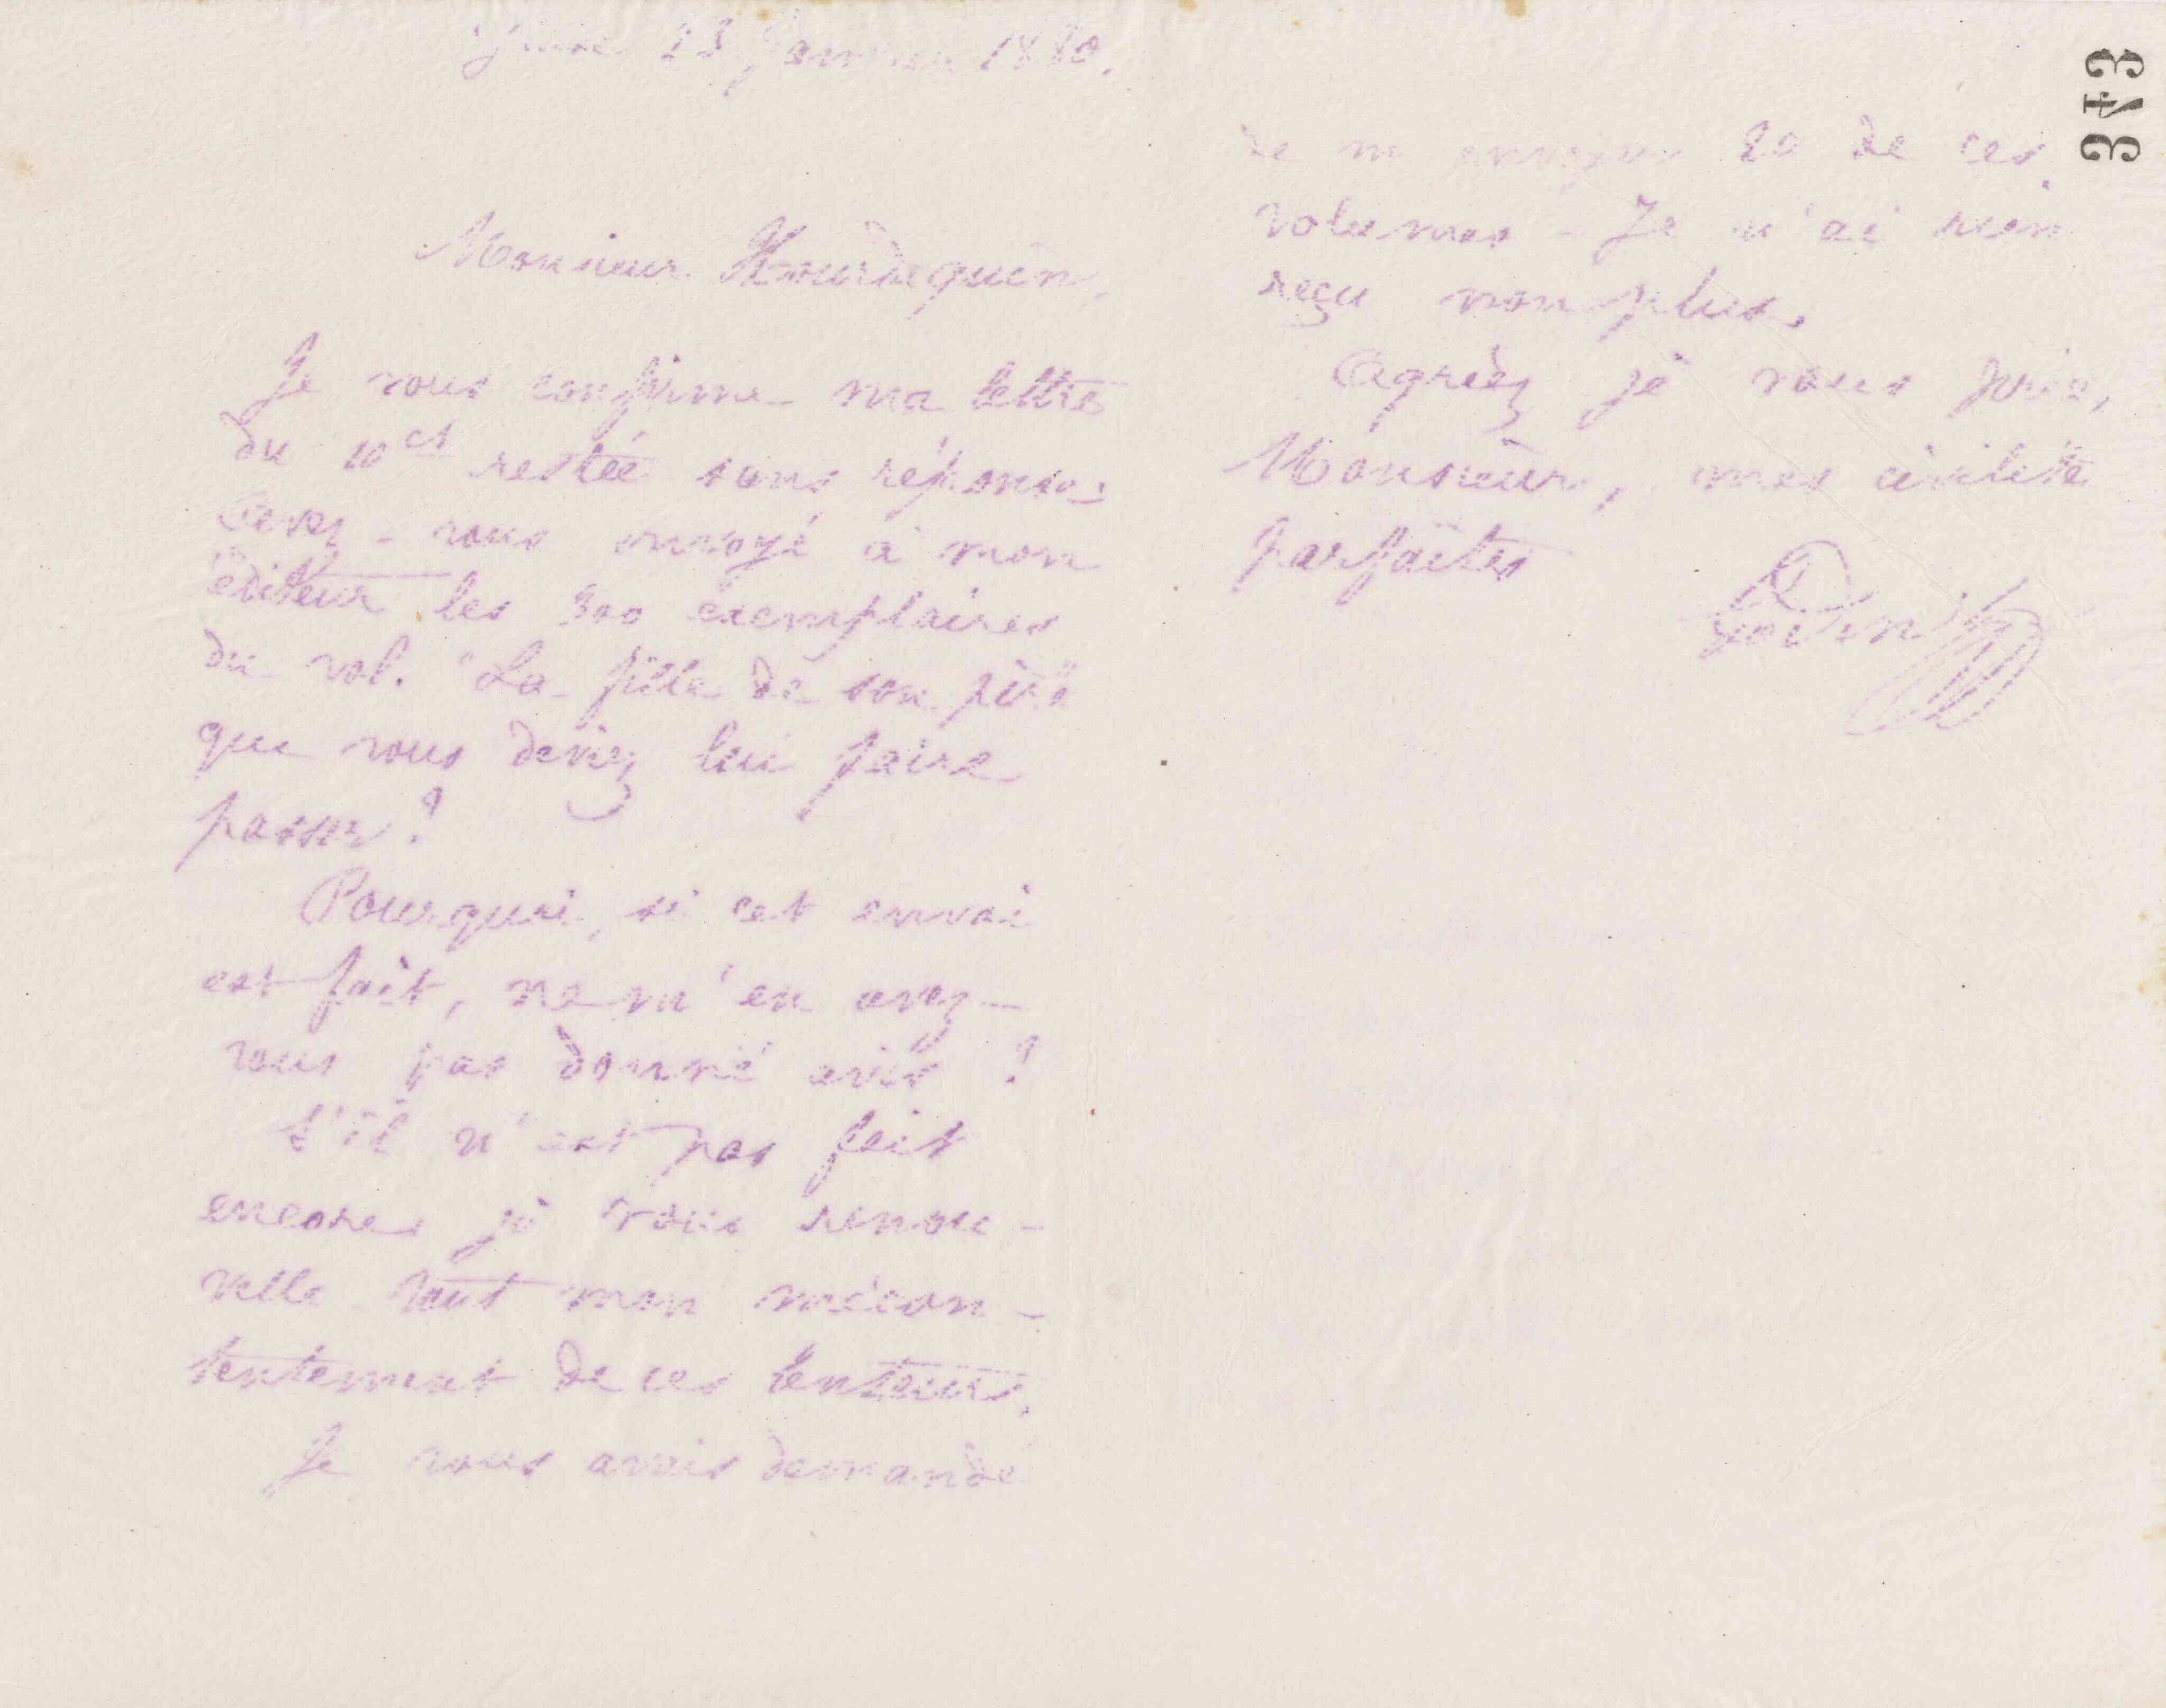 Guise 13 Janvier 1880.
Monsieur Hourdequin,
Je vous confirme ma lettre
du 10 ct restée sans réponse.
Avez-vous envoyé à mon
éditeur les 300 exemplaires
du vol. "La fille de son père"
que vous deviez lui faire
passer ?
Pourquoi, si cet envoi
est fait, ne m'en avez-
vous pas donné avis ?
S'il n'est pas fait
encore je vous renou-
velle tout mon mécon-
tentement de ces lenteurs.
Je vous avais demandé
de m'envoyer 20 de ces
volumes - Je n'ai rien
reçu non plus.
Agréez je vous prie,
Monsieur, mes civilités
parfaites
Godin
343